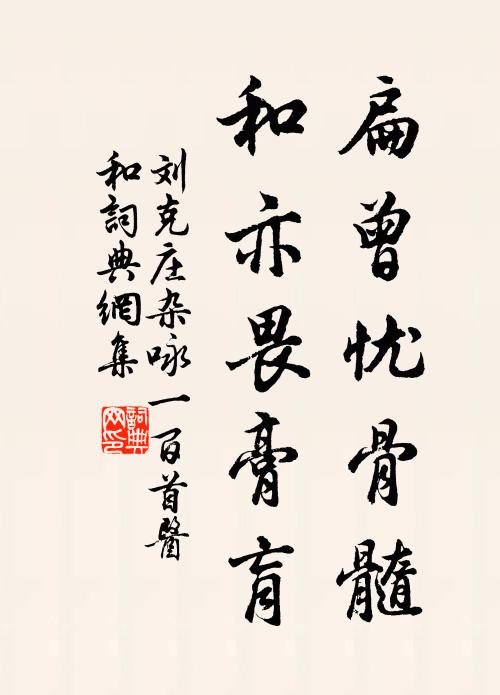 扁曾忧骨髓
和亦畏膏肓
刘克庄杂咏一百首醫
和詞典網集
詞典
网印